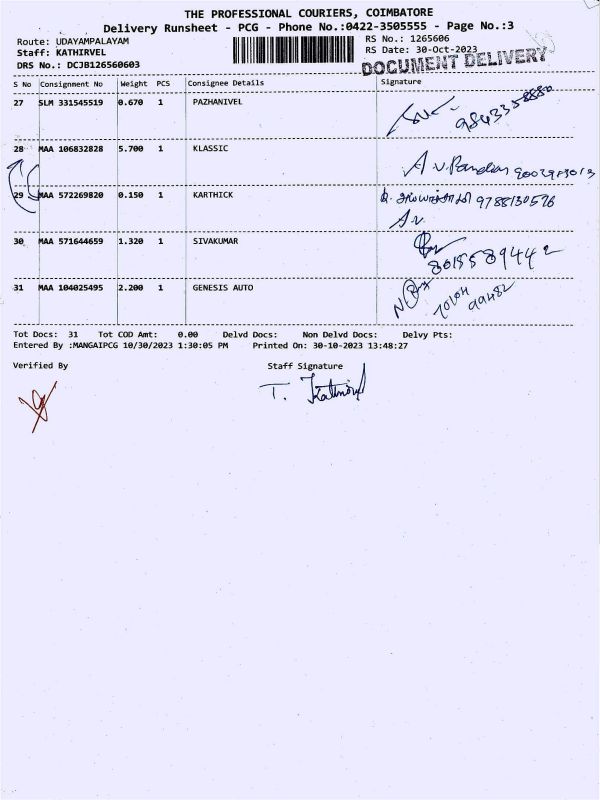 THE PROFESSIONAL COURIERS, COIMBATORE
Delivery Runsheet - PCG - Phone No.:0422-3505555 - Page No.:3
Route: UDAYAMPALAYAM RS No.: 1265606
Staff: KATHIRVEL RS Date: 30-Oct-2023
DRS No.: DCJB126560603 DOCUMENT DELIVERY
S No Consignment No Weight PCS Consignee Details Signature
27 SLM 331545519 0.670 1 PAZHANIVEL
9843358880
28 MAA 106832828 5.700 1 KLASSIC
A.V.Pandian
29 MAA 572269820 0.150 1 KARTHICK
9788130576
A.V.
30 MAA 571644659 1.320 1 SIVAKUMAR
8015589442
31 MAA 104025495 2.200 1 GENESIS AUTO
99482
Tot Docs: 31 Tot COD Amt: 0.00 Delvd Docs: Non Delvd Docs: Delvy Pts:
Entered By :MANGAIPCG 10/30/2023 1:30:05 PM Printed On: 30-10-2023 13:48:27
Verified By Staff Signature
T.